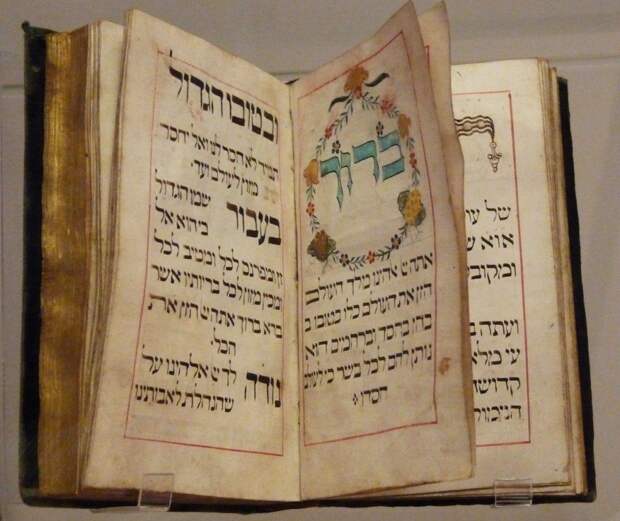 של
ועתה
קדושה
ברוך
אתה יי אלהינו מלך העולם
הזן את העולם כלו בטובו ב
בחן בחסד וברחמים הוא
נותן לחם לכל בשר כי לעולם
חסדו
ובטובו הגדול
תמיד לא חסר לנו ואל יחסר
לנו מזון לעולם ועד.
בעבור שמו הגדול
כי הוא אל
זן ומפרנס לכל ומטיב לכל
ומכין מזון לכל בריותיו אשר
ברא ברוך אתה יי הזן את
הכל.
נודה לך יי אלהינו על
שהנחלת לאבותינו